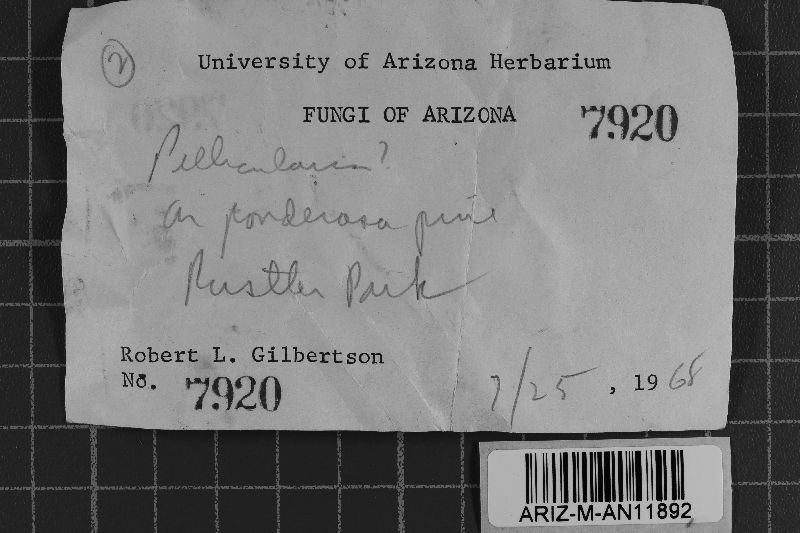 2
University of Arizona Herbarium
FUNGI OF ARIZONA 7920
Pellicularia?
on ponderosa pine
Rustler Park
Robert L. Gilbertson
No. 7920 7/25, 1968
ARIZ-M-AN11892